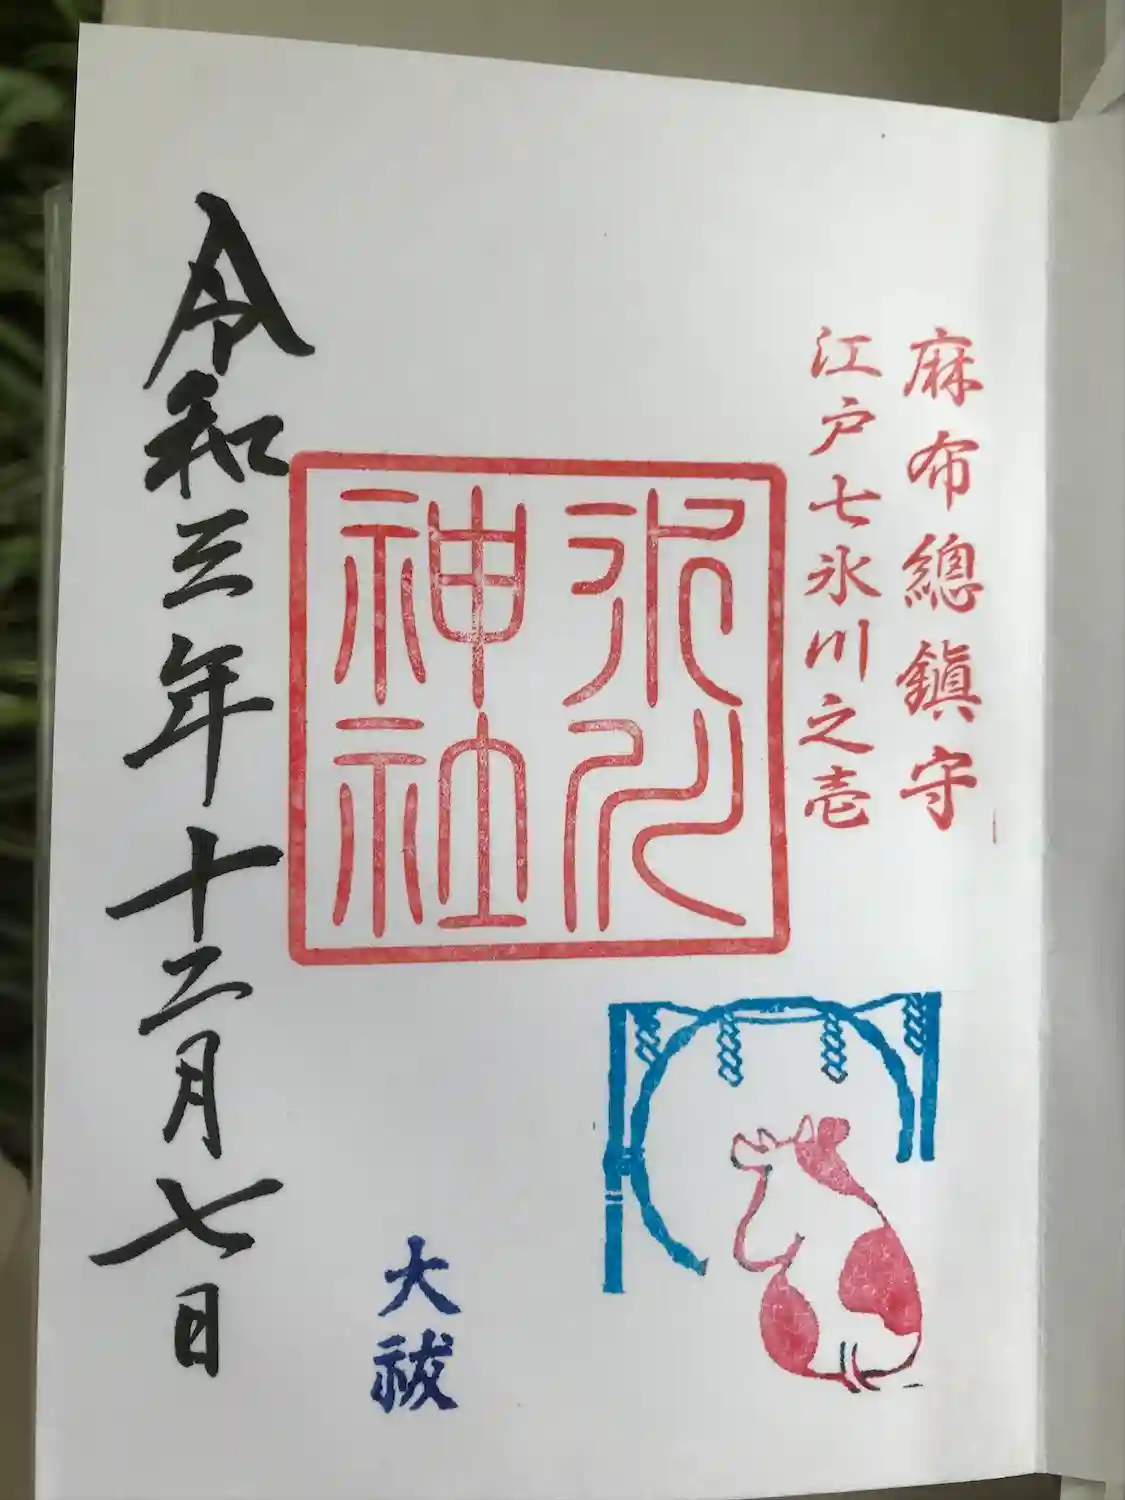 麻布總鎭守
江戸七氷川之壱
氷川
神社
大祓
令和三年十二月七日